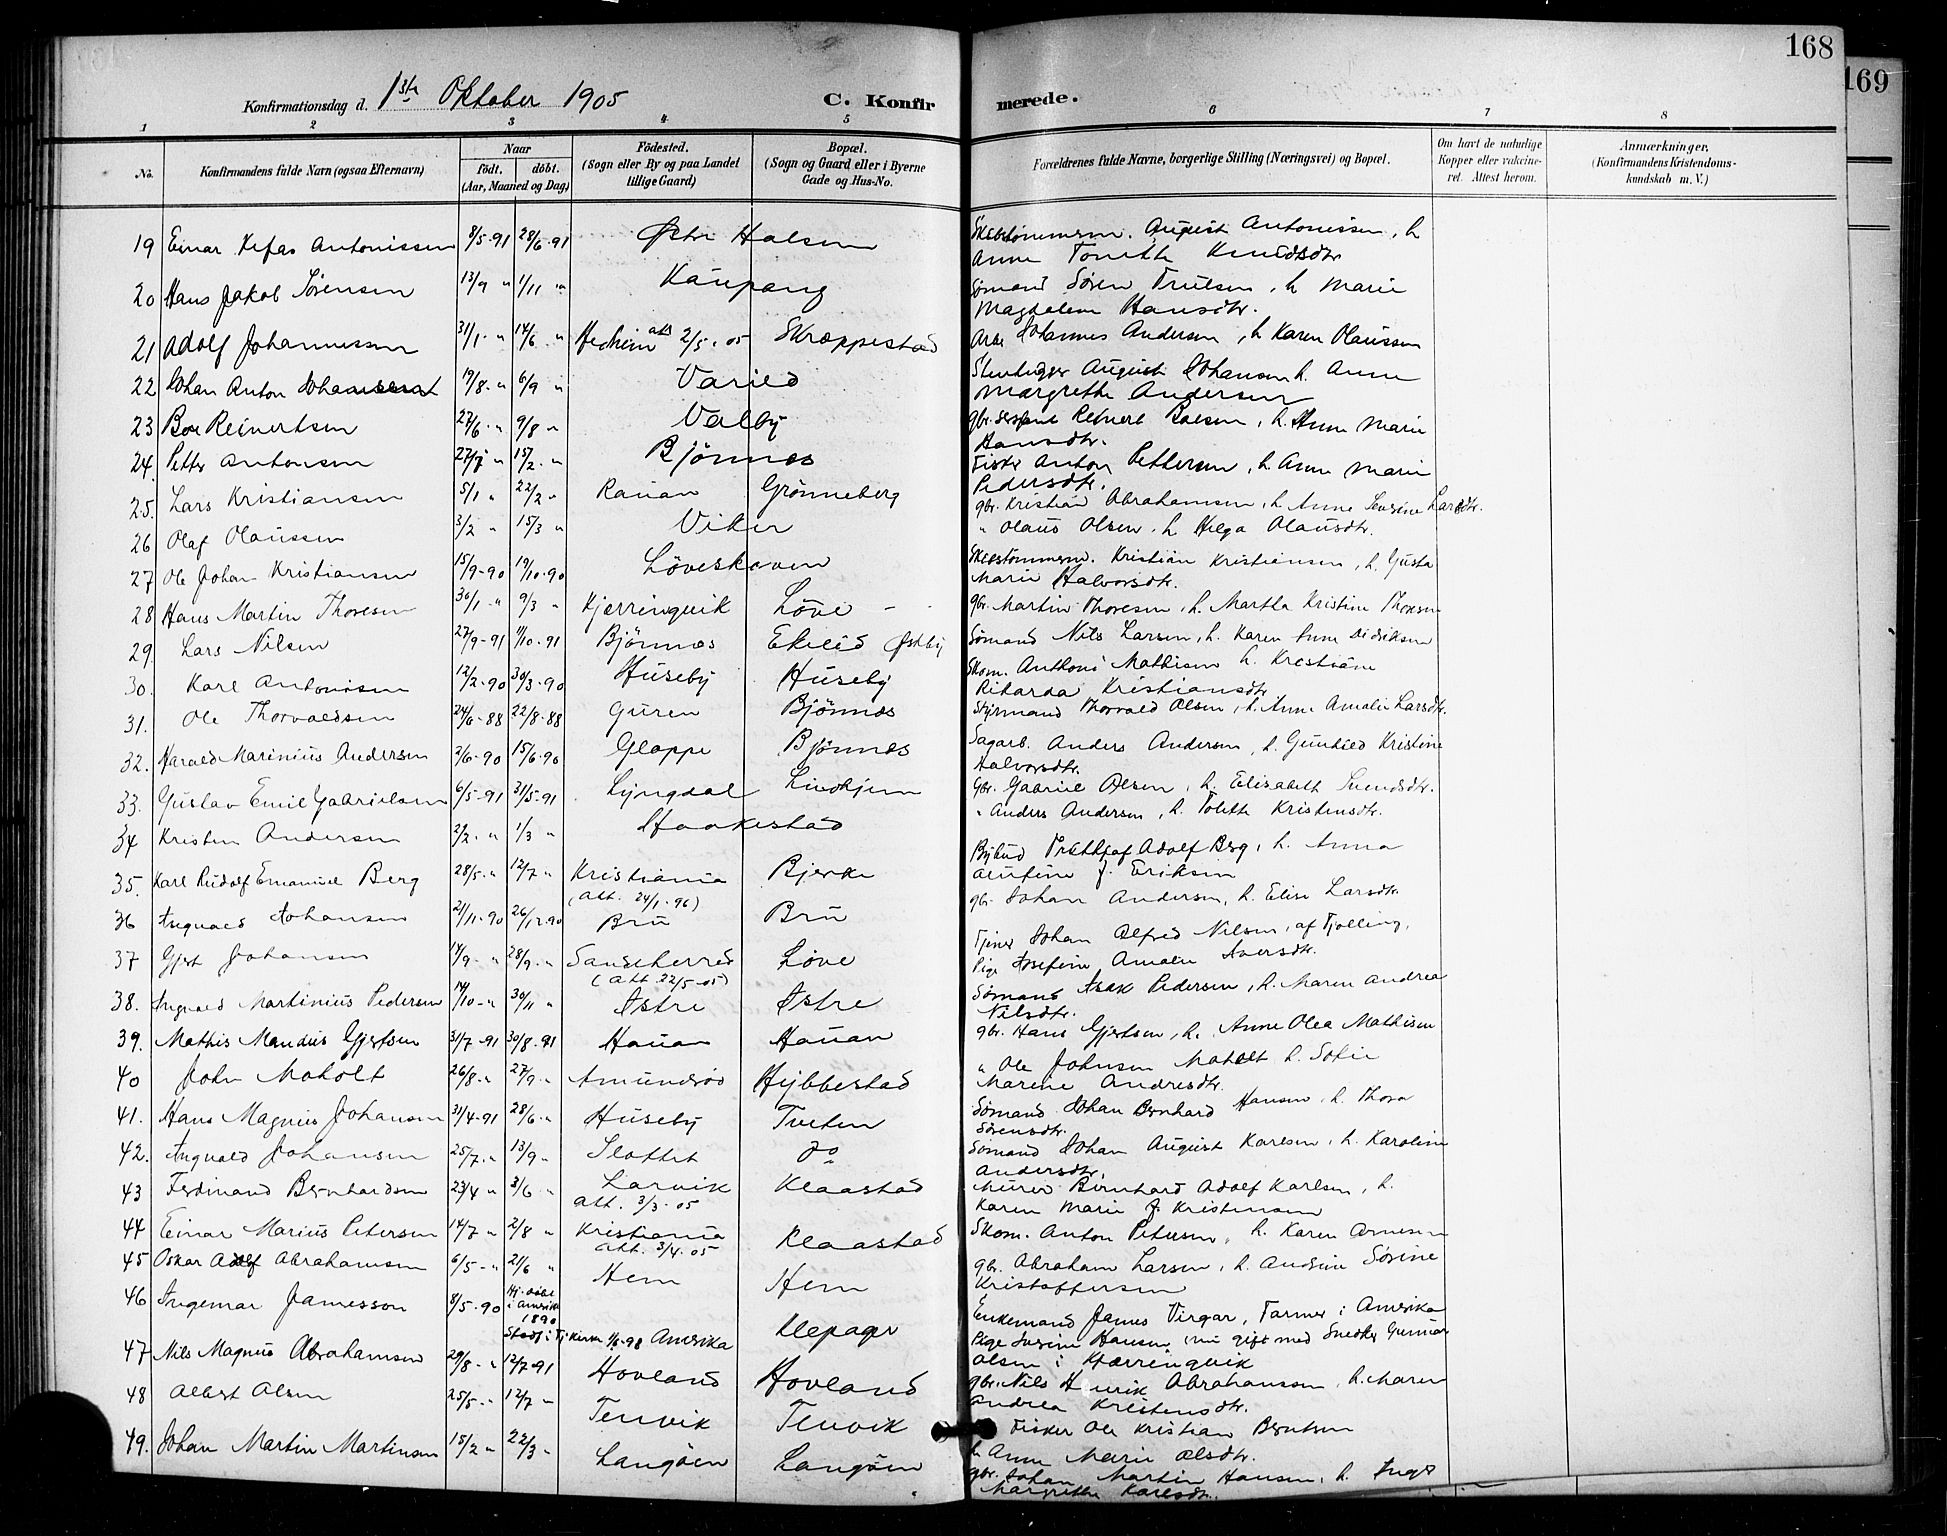 168
169
Konfirmationsdag d. 1ste Oktober 1905 C. Konfirmerede.
1 2 3 4 5 6 7 8
No. Konfirmandens fulde Navn (ogsaa Efternavn) Naar født. døbt. (Aar, Maaned og Dag) Fødested. (Sogn eller By og paa Landet tillige Gaard) Bopæl. (Sogn og Gaard eller i Byerne Gade og Hus-No. Forældrenes fulde Navne, borgerlige Stilling (Næringsvei) og Bopæl. Om havt de naturlige Kopper eller vakcineret. Attest herom. Anmærkninger, (Konfirmandens Kristendomskundskab m. V.)
19 Einar Kefas Antonissen 8/5-91 28/6-91 Østre Halsen Skibstømmerm. August Antonissen, h.
Anne Tonette Knudsdtr
20 Hans Jakob Sörensen 13/9 " 1/11 " Kaupang Sömand Sören Trulsen, h. Marie
Magdalene Hansdtr.
21 Adolf Johannessen 31/1 " 14/6 " att 2/5-05 Skreppestad Arb. Johannes Andersen, h. Karen Olaussen
22 Johan Anton Johansen 19/8 " 6/9 " Varild August Johansen h. Anne
Margrethe Andersen
23 Boe Reinertsen 27/6 " 9/8 " Valby gbr. Reinert Boesen, h. Anne Marie
Hansdtr.
24. Petter Antonsen 15/2 " Bjönnes Fisker Anton Pettersen, h. Anne Marie
Pedersdtr.
25. Lars Kristiansen 5/1 " 22/2 " Rauan Grönneberg gbr. Kristian Abrahamsen, h. Anne Larsdtr.
26 Olaf Olaussen 3/2 " 15/3 " Viker " Olaus Olsen, h. Helga Olausdtr.
27 Ole Johan Kristiansen 15/9-90 19/10-90 Löveskoven Skibstömmerm. Kristian Kristiansen, h. Gusta
Marie Halvorsdtr.
28 Hans Martin Thoresen 30/1 " 9/3 " Kjerringvik Löve gbr. Martin Thoresen, h. Martha Kristine Thoresen
29. Lars Nilsen 27/9-91 11/10-91 Bjönnes Eklid Østby Sömand Nils Larsen, h. Karen Anne Didriksen
30. Karl Antonisen 12/2-90 30/3-90 Huseby Huseby Skom. Anthoni Mathisen h. Kristiane
Rikarda Kristiansdtr
31. Ole Thorvaldsen 24/6-88 22/8-88 Guren Bjönnes Styrmand Thorvald Olsen, h. Anne Amalie Larsdtr.
32. Harald Marinius Andersen 2/6-90 15/6-90 Gloppe Bjönnes Sagarb. Anders Andersen, h. Gunhild Kristine
Halvorsdtr.
33. Gustav Emil Gabrielsen 6/5-91 31/5-91 Lyngdal Lindhjem Gbr. Gabriel Olsen, h. Elisabeth Svendsdtr.
34 Kristen Andersen 2/2 " 1/3 " Haakestad " Anders Andersen, h. Tolette Kristensdtr.
35. Karl Rudolf Emanuel Berg 28/5 " 12/7 " Kristiania Bjerke Bybud Adolf Berg, h. Anna
(Att. 24/1-96) f. Eriksen
36 Ingvald Johansen 21/11-90 26/12-90 Bru Bru gbr. Johan Andersen, h. Elise Larsdtr.
37 Gjert Johansen 14/9 " 28/9 " Sandeherred Löve Tjener Johan Alfred Nilsen, af Tjölling,
(Att. 22/5-05) Pige Josefine Amalie Iversdtr.
38. Ingvald Martinius Pedersen 14/10 " 30/11 " Istre Istre Sömand Isak Pedersen, h. Maren Andrea
Nilsdtr.
39. Mathis Mandius Gjertsen 31/7-91 30/8-91 Hauan Hauan gbr. Hans Gjertsen, h. Anne Olea Mathisen
40 John Moholt 26/8 " 27/9 " Amundrød Hybbestad " Ole Johnsen Moholt h. Sofie
Marine Andresdtr.
41. Hans Magnus Johansen 31/4-91 28/6 " Huseby Tveten Sömand Johan Bernhard Hansen, h. Thora
Sörensdtr.
42. Ingvald Johansen 25/7 " 13/9 " Slottet do Sömand Johan August Karlsen, h. Karoline
Andersdtr.
43 Ferdinand Bernhardsen 23/4 " 3/6 " Larvik Klaastad Murer Bernhard Adolf Karlsen, h.
Att. 3/3-05 Karen Marie f. Kristensen
44 Einar Marius Petersen 14/7 " 2/8 " Kristiania Klaastad Skom. Anton Petersen, h. Karen Arnesen
Att. 3/4-05
45 Oskar Adolf Abrahamsen 6/5 " 21/6 " Hem Hem gbr. Abraham Larsen, h. Andrine Sörine
Kristoffersen
46 Ingemar Jamesson 8/5-90 Hj. döbt i Amerika 1890 Amerika Klepager Enkemand James Virgar, Farmer i Amerika
Pige Hansen (nu gift med Snedker Gunnar
Olsen i Kjærringvik
47 Nils Magnus Abrahamsen 29/8 " 12/7-91 Hovland Hovland gbr. Nils Henrik Abrahamsen, h. Maren
Andrea Kristensdtr.
48 Albert Olsen 25/5 " 12/7 " Tenvik Tenvik Fisker Ole Kristian Berntsen
h. Anne Marie Olsdtr.
49. Johan Martin Martinsen 15/2 " 22/3 " Langöen Langöen gbr. Johan Martin Hansen, h.
Margrethe Karlsdtr.